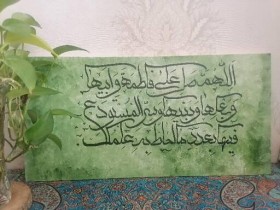 اللهم صل علی فاطمة و ابیها
و بعلها و بنیها و سر المستودع
فیها بعدد ما احاط به علمک